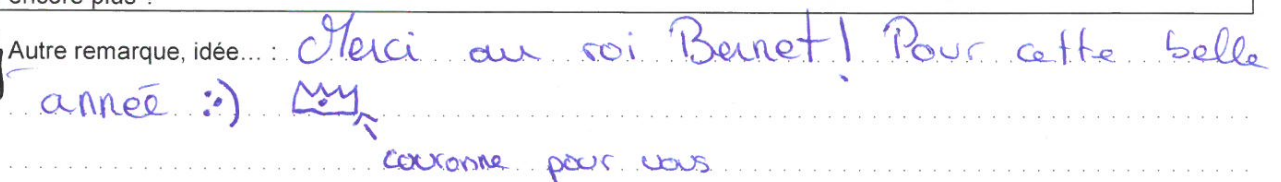 encore plus ?
Autre remarque, idée... : Merci au roi Bernet ! Pour cette belle
année :)
couronne pour vous